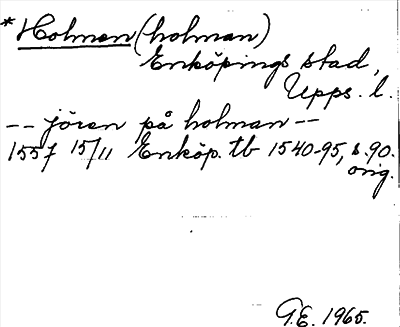 *Holman (holman)
Enköpings stad,
Upps. l.
-- jören på holman --
1557 15/11 Enköp. tb 1540-95, s. 90.
orig.
G.E. 1965.